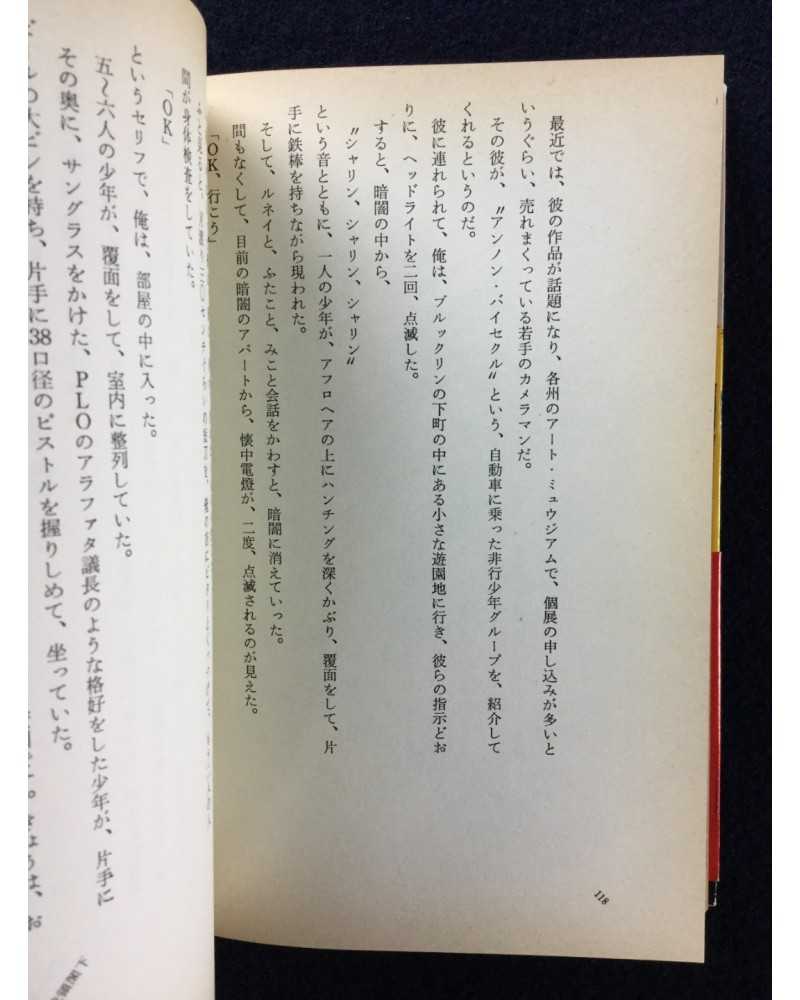 最近では、彼の作品が話題になり、各州のアート・ミュウジアムで、個展の申し込みが多いと
いうぐらい、売れまくっている若手のカメラマンだ。
その彼が、〝アンノン・バイセクル〟という、自動車に乗った非行少年グループを、紹介して
くれるというのだ。
彼に連れられて、俺は、ブルックリンの下町の中にある小さな遊園地に行き、彼らの指示どお
りに、ヘッドライトを二回、点滅した。
すると、暗闇の中から、
〝シャリン、シャリン、シャリン〟
という音とともに、一人の少年が、アフロヘアの上にハンチングを深くかぶり、覆面をして、片
手に鉄棒を持ちながら現われた。
そして、ルネイと、ふたこと、みこと会話をかわすと、暗闇に消えていった。
間もなくして、目前の暗闇のアパートから、懐中電燈が、二度、点滅されるのが見えた。
「OK、行こう」
118
間が身体検査をしていた。
「OK」
というセリフで、俺は、部屋の中に入った。
五〜六人の少年が、覆面をして、室内に整列していた。
その奥に、サングラスをかけた、PLOのアラファタ議長のような格好をした少年が、片手に
を持ち、片手に38口径のピストルを握りしめて、坐っていた。